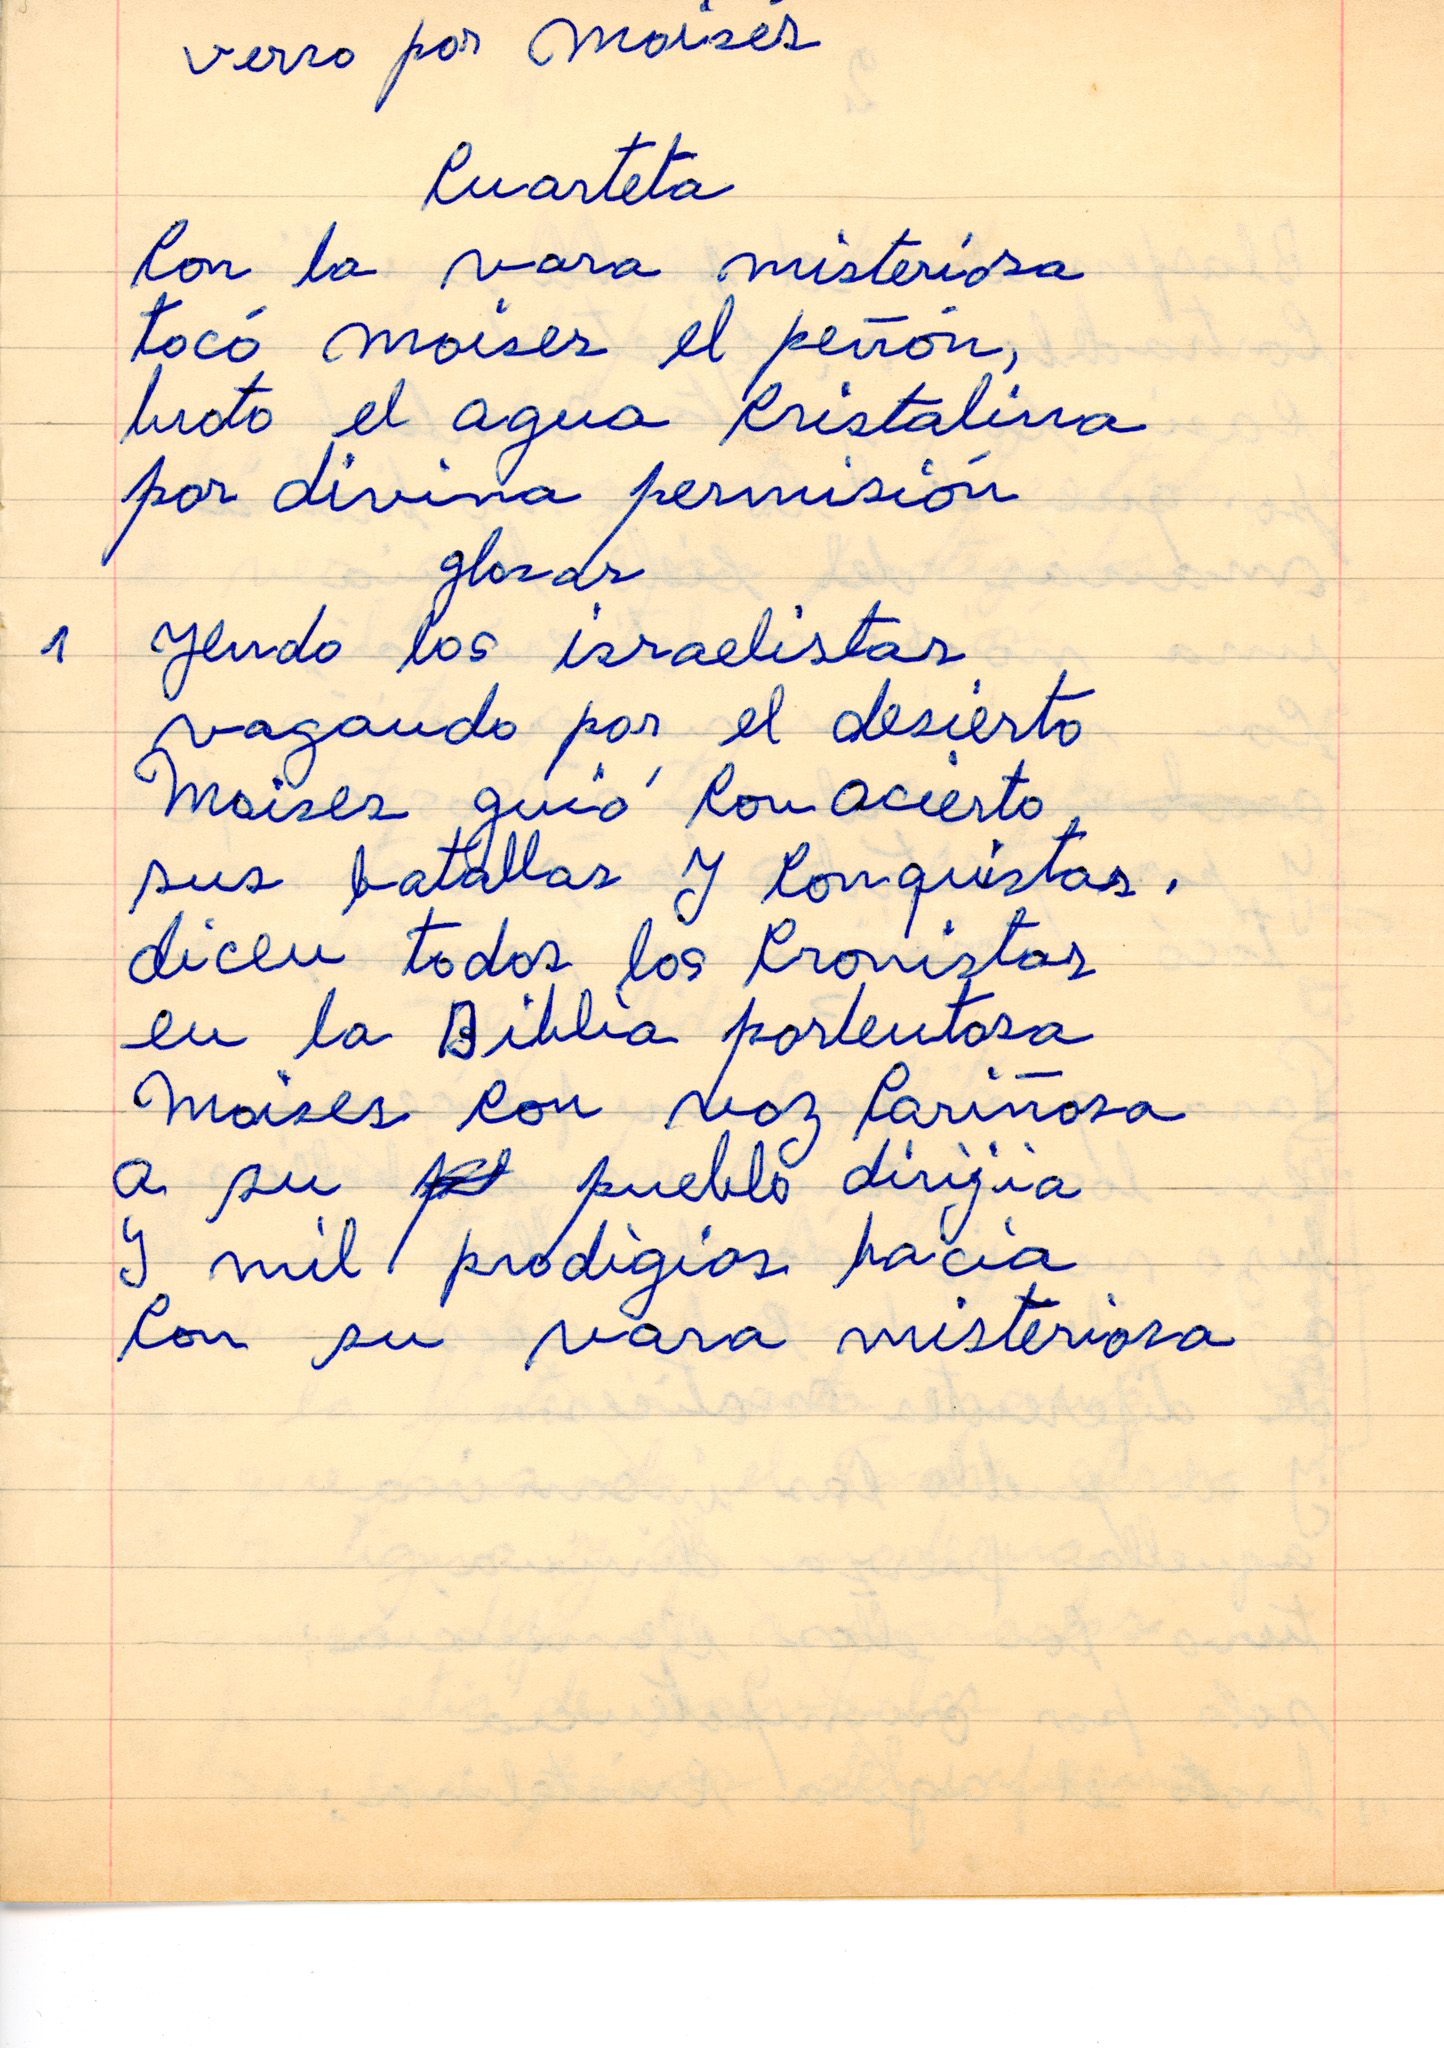 verso por Moisés
Cuarteta
Con la vara misteriosa
tocó Moises el peñón,
broto el agua Cristalina
por divina permisión
glosas
1 Yendo los israelistas
vagando por el desierto
Moises guió Con acierto
sus batallas y Conquistas.
dicen todos los Cronistas
en la Biblia portentosa
Moises Con voz Cariñosa
a su pueblo dirijia
y mil prodigios hacia
Con su vara misteriosa